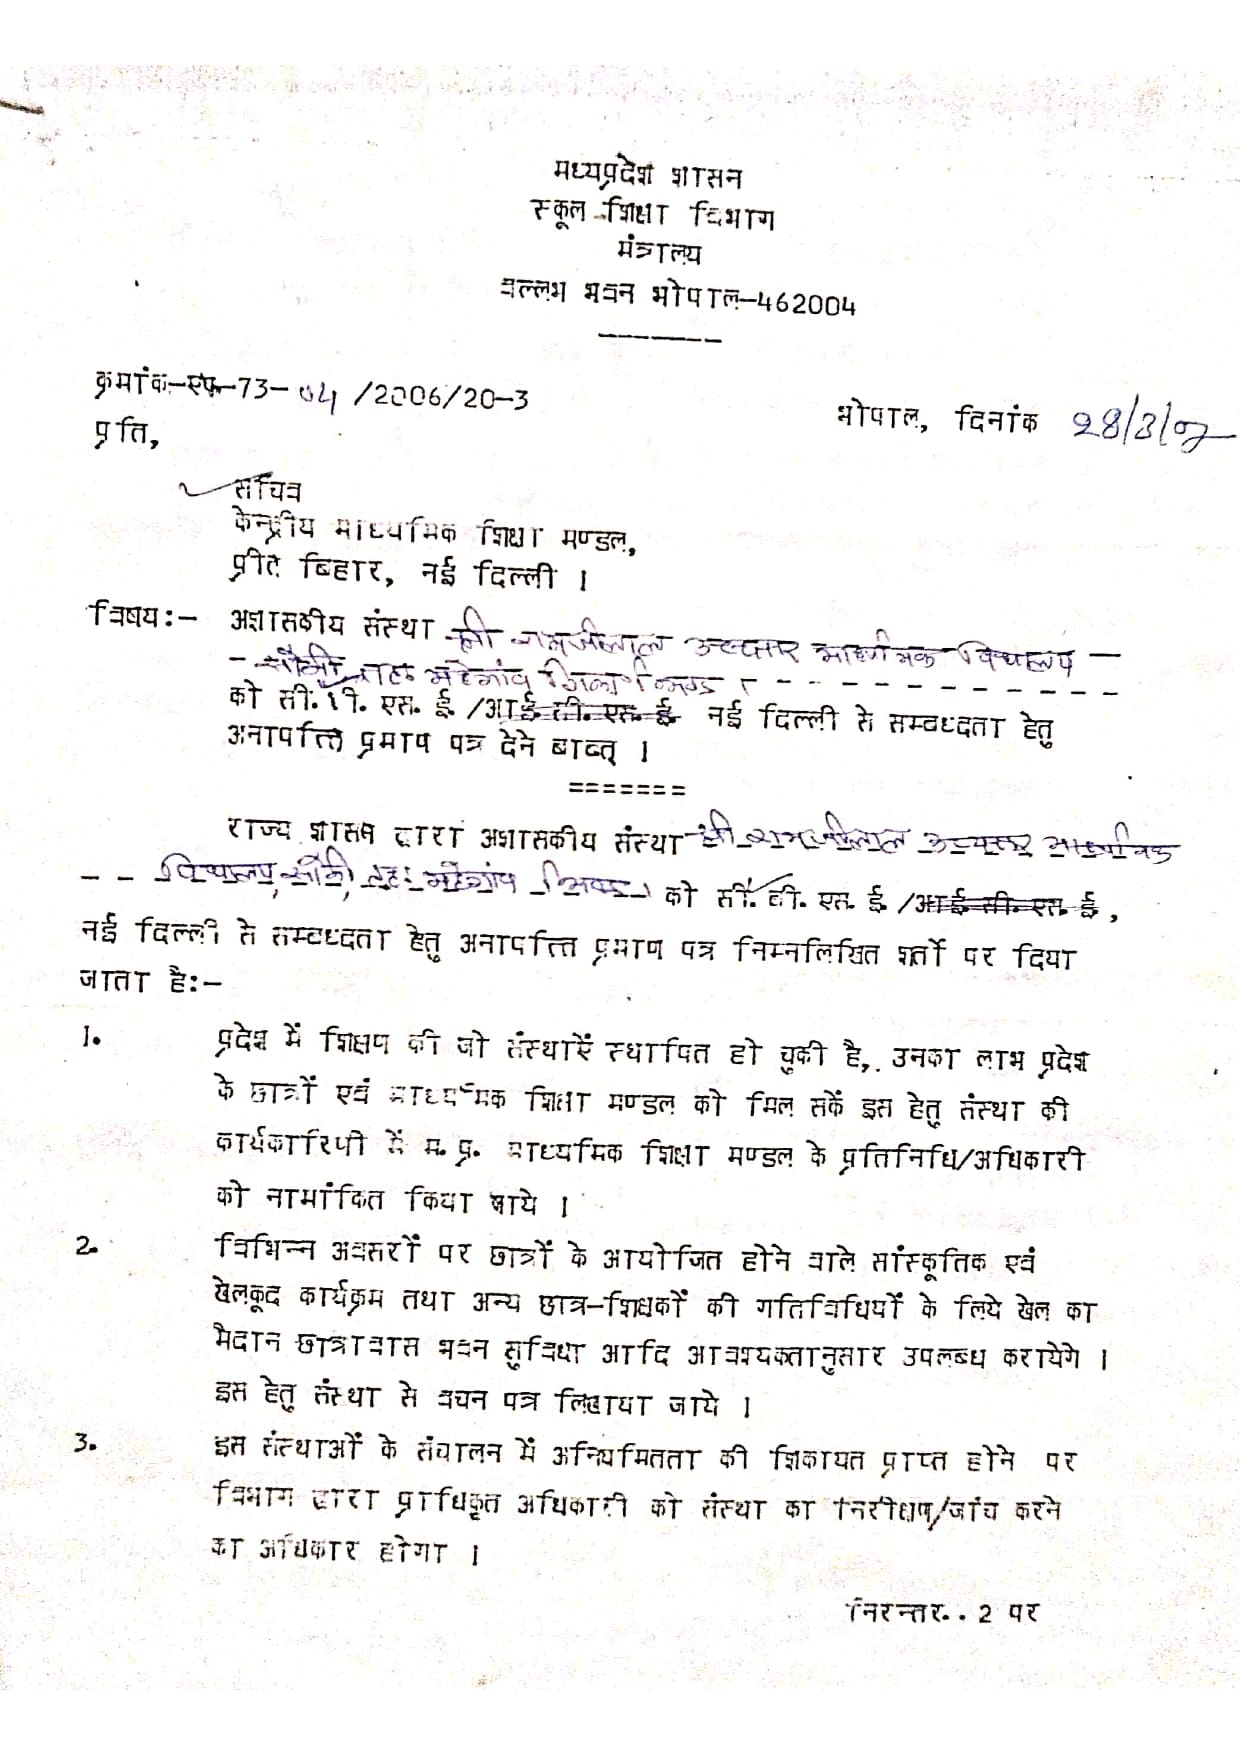 मध्यप्रदेश शासन
स्कूल शिक्षा विभाग
मंत्रालय
वल्लभ भवन भोपाल-462004
क्रमांक-एफ-73-04/2006/20-3
भोपाल, दिनांक 28/3/07
प्रति,
सचिव
केन्द्रीय माध्यमिक शिक्षा मण्डल,
प्रीत बिहार, नई दिल्ली ।
विषय:- अशासकीय संस्था श्री रामजीलाल उच्चतर माध्यमिक विद्यालय
तह. मेहगांव जिला भिण्ड
को सी. बी. एस. ई./आई.सी.एस.ई. नई दिल्ली से सम्बध्दता हेतु
अनापत्ति प्रमाण पत्र देने बाबत् ।
=======
राज्य शासन द्वारा अशासकीय संस्था श्री रामजीलाल उच्चतर माध्यमिक
विद्यालय, तह. मेहगांव भिण्ड को सी. बी. एस. ई./आई.सी.एस.ई,
नई दिल्ली से सम्बध्दता हेतु अनापत्ति प्रमाण पत्र निम्नलिखित शर्तो पर दिया
जाता है:-
1. प्रदेश में शिक्षण की जो संस्थाऐं स्थापित हो चुकी है, उनका लाभ प्रदेश
के छात्रों एवं माध्यमिक शिक्षा मण्डल को मिल सकें इस हेतु संस्था की
कार्यकारिणी में म. प्र. माध्यमिक शिक्षा मण्डल के प्रतिनिधि/अधिकारी
को नामांकित किया जाये ।
2. विभिन्न अवसरों पर छात्रों के आयोजित होने वाले सांस्कृतिक एवं
खेलकूद कार्यक्रम तथा अन्य छात्र-शिक्षकों की गतिविधियों के लिये खेल का
मैदान छात्रावास भवन सुविधा आदि आवश्यकतानुसार उपलब्ध करायेगे ।
इस हेतु संस्था से वचन पत्र लिखाया जाये ।
3. इस संस्थाओं के संचालन में अनियमितता की शिकायत प्राप्त होने पर
विभाग द्वारा प्राधिकृत अधिकारी को संस्था का निरीक्षण/जांच करने
का अधिकार होगा ।
निरन्तर.. 2 पर